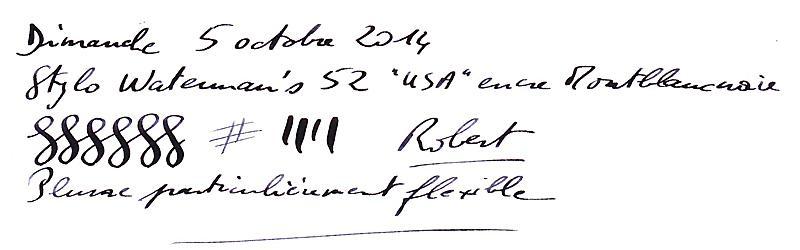 Dimanche 5 octobre 2014
Stylo Waterman's 52 "USA" encre Montblanc noire
# Robert
Plume particulièrement flexible